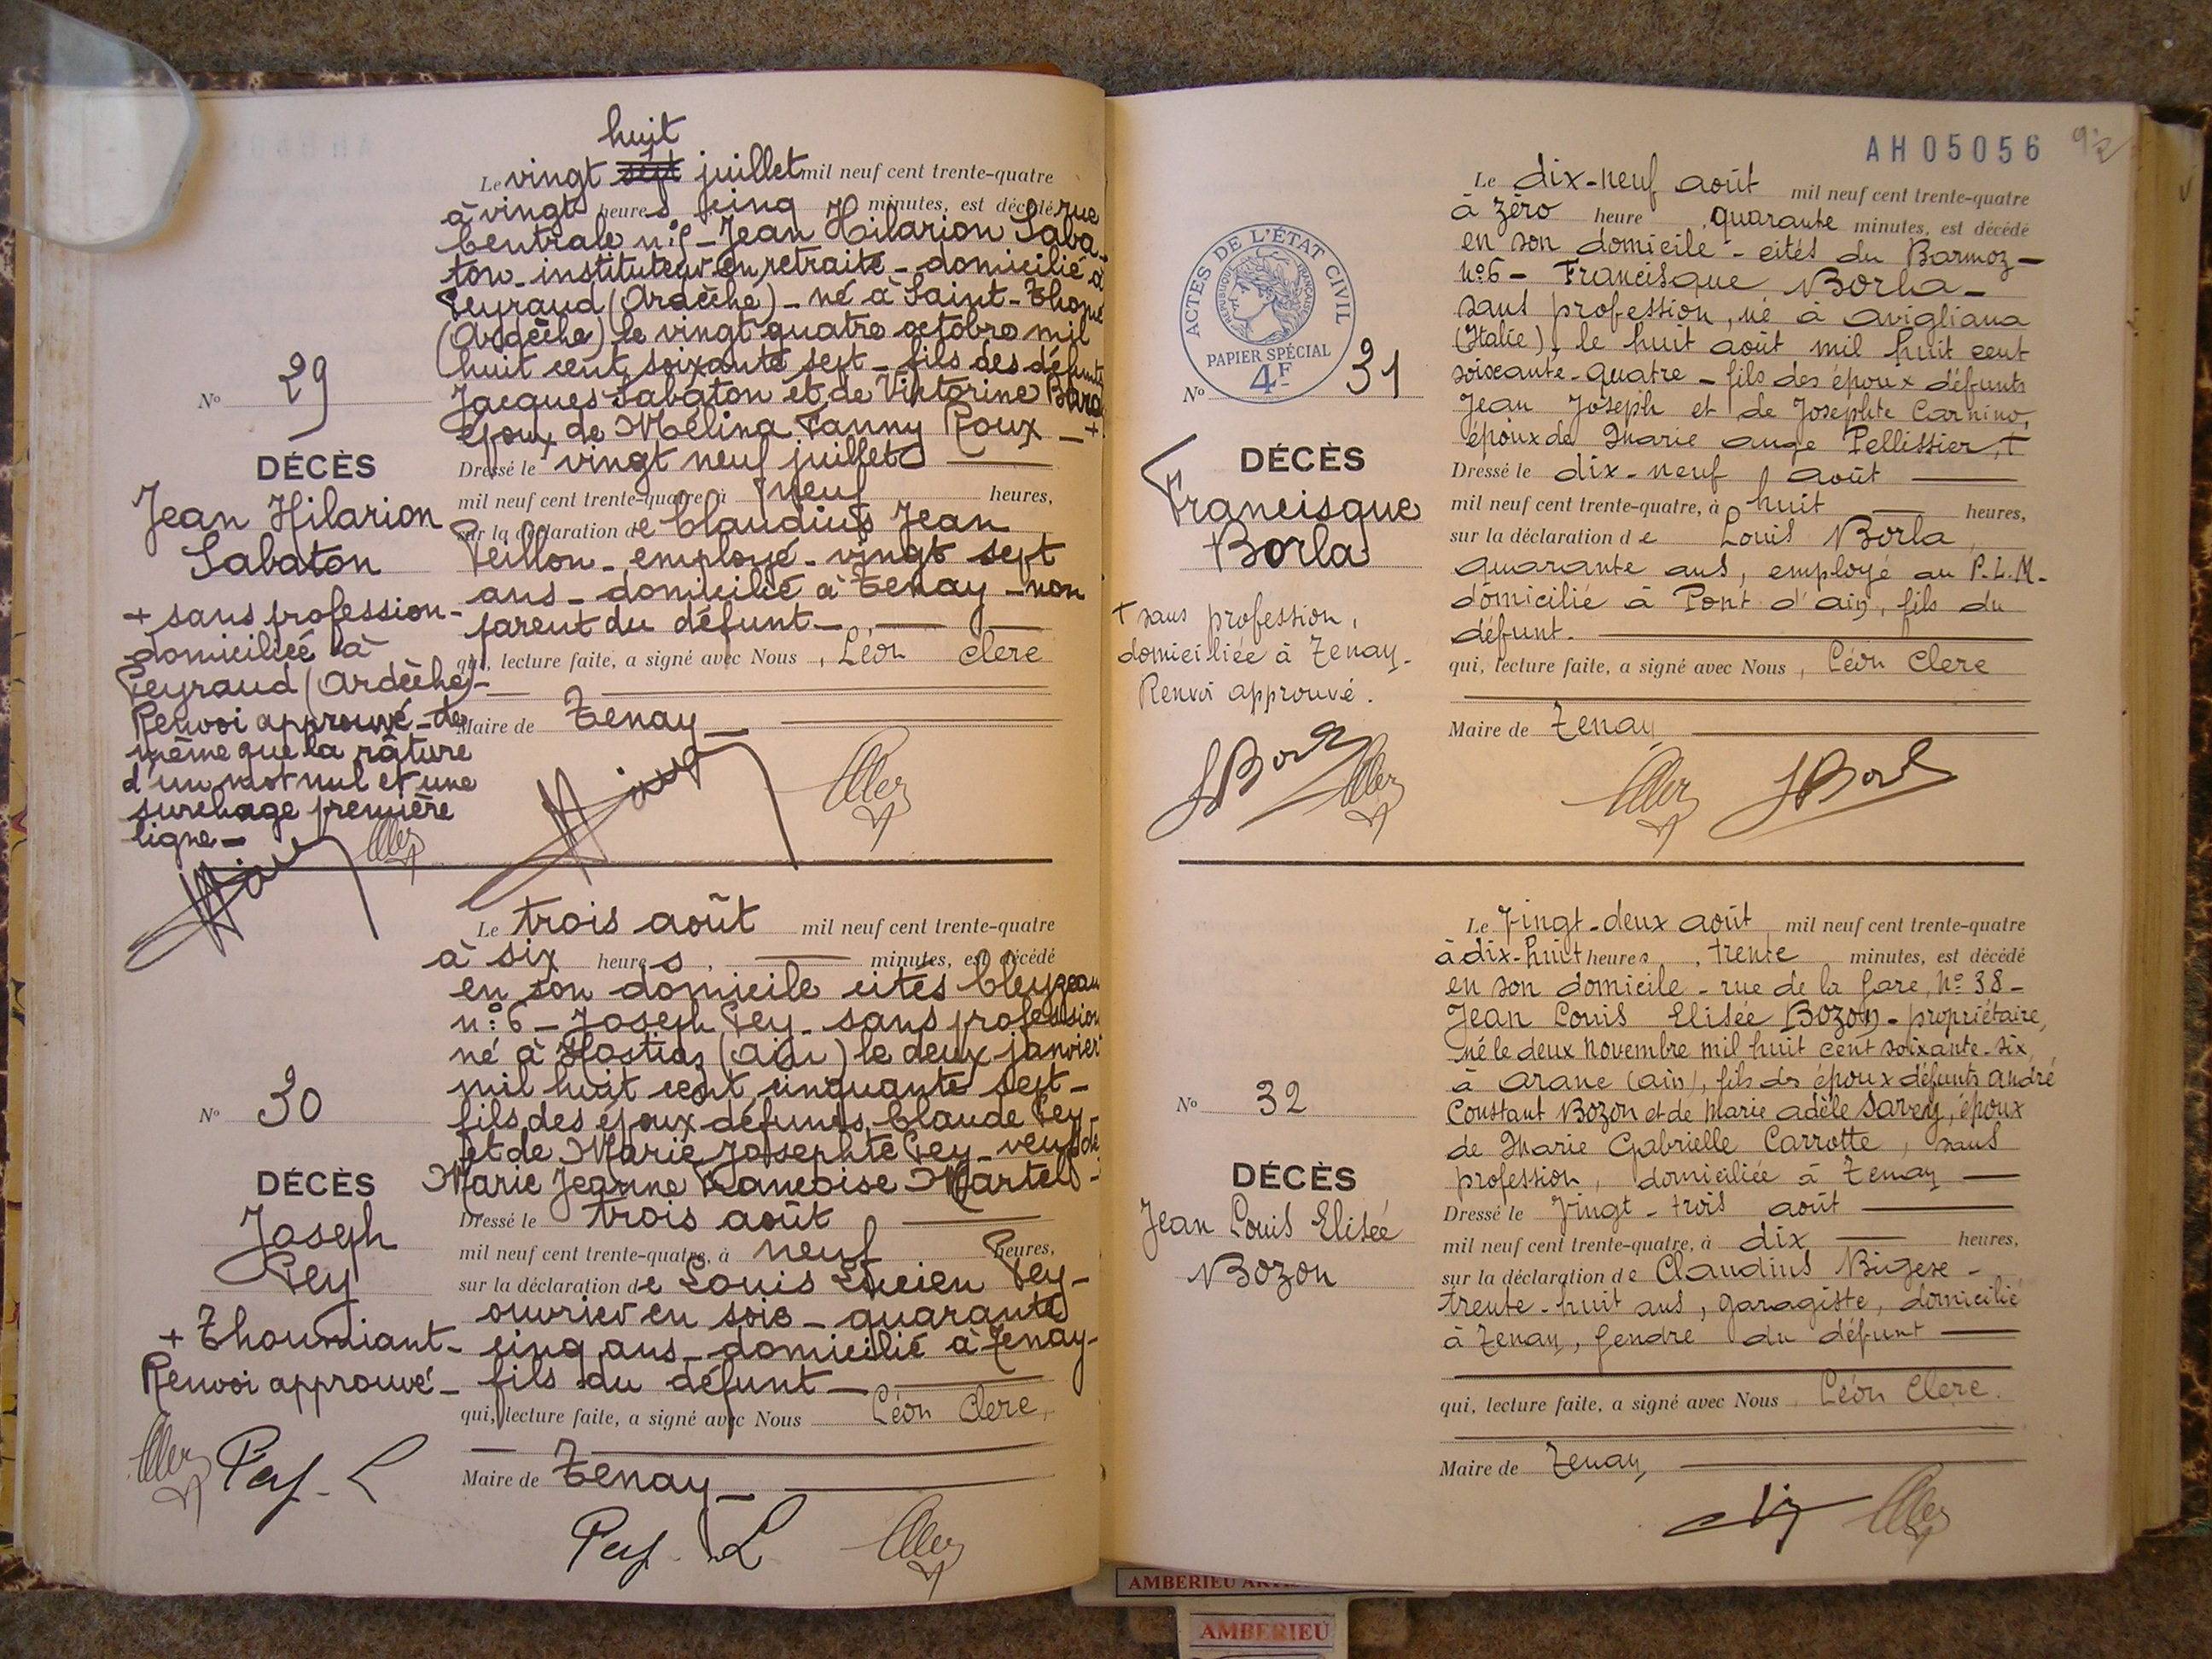 huit
Le vingt sept juillet mil neuf cent trente-quatre
à vingt heures cinq minutes, est décédé rue
Centrale n° Jean Hilarion Saba-
ton - instituteur en retraite - domicilié à
Peyraud (Ardèche) - né à Saint-Thomé
(Ardèche) le vingt quatre octobre mil
huit cent soixante sept - fils des défunts
Jacques Sabaton et de Viktorine
époux de Mélina Fanny Roux - +
Dressé le vingt neuf juillet
mil neuf cent trente-quatre, à neuf heures,
sur la déclaration de Claudius Jean
Peillon - employé - vingt sept
ans - domicilié à Tenay - non
parent du défunt -
qui, lecture faite, a signé avec Nous, Léon Clerc
Maire de Tenay
No 29
DÉCÈS
Jean Hilarion
Sabaton
+ sans profession -
domiciliée à
Peyraud (Ardèche) -
Renvoi approuvé - de
même que la râture
d'un mot nul et une
surchage première
ligne -
Le trois août mil neuf cent trente-quatre
à six heures, minutes, est décédé
en son domicile cités Cleyzeau
n° 6 - Joseph Pey - sans profession
né à Hostiaz (Ain) le deux janvier
mil huit cent cinquante sept -
fils des époux défunts, Claude Pey -
et de Marie Josephte Pey - veuf de
Marie Jeanne Francoise Martel -
Dressé le trois août
mil neuf cent trente-quatre, à neuf heures,
sur la déclaration de Louis Lucien Pey -
ouvrier en soie - quarante
cinq ans - domicilié à Tenay -
fils du défunt -
qui, lecture faite, a signé avec Nous Léon Clerc,
Maire de Tenay
No 30
DÉCÈS
Joseph
Pey
+ Thoumiant -
Renvoi approuvé -
Pey. L
Pey. L
AH05056 92
Le dix-neuf août mil neuf cent trente-quatre
à zéro heure, quarante minutes, est décédé
en son domicile - cités du Barmoz -
n° 6 - Francisque Borla -
sans profession, né à Avigliana
(Italie), le huit août mil huit cent
soixante-quatre - fils des époux défunts
Jean Joseph et de Josephte Carnino,
époux de Marie Ange Pellissier, +
Dressé le dix-neuf août
mil neuf cent trente-quatre, à huit heures,
sur la déclaration de Louis Borla,
quarante ans, employé au P.L.M.
domicilié à Pont d'Ain, fils du
défunt.
qui, lecture faite, a signé avec Nous, Léon Clerc
Maire de Tenay
ACTES DE L'ÉTAT CIVIL
RÉPUBLIQUE FRANÇAISE
PAPIER SPÉCIAL
4F
No 31
DÉCÈS
Francisque
Borla
+ sans profession,
domiciliée à Tenay.
Renvoi approuvé.
LBorla
LBorla
Le Vingt-deux août mil neuf cent trente-quatre
à dix-huit heures, trente minutes, est décédé
en son domicile - rue de la Gare, N° 38 -
Jean Louis Elisée Bozon - propriétaire,
né le deux novembre mil huit cent soixante-six,
à Arane (Ain), fils des époux défunts André
Constant Bozon et de Marie Adèle Savey, époux
de Marie Gabrielle Carrotte, sans
profession, domiciliée à Tenay
Dressé le Vingt-trois août
mil neuf cent trente-quatre, à dix heures,
sur la déclaration de Claudius
trente-huit ans, garagiste, domicilié
à Tenay, gendre du défunt
qui, lecture faite, a signé avec Nous, Léon Clerc.
Maire de Tenay
No 32
DÉCÈS
Jean Louis Elisée
Bozon
AMBERIEU
AMBERIEU